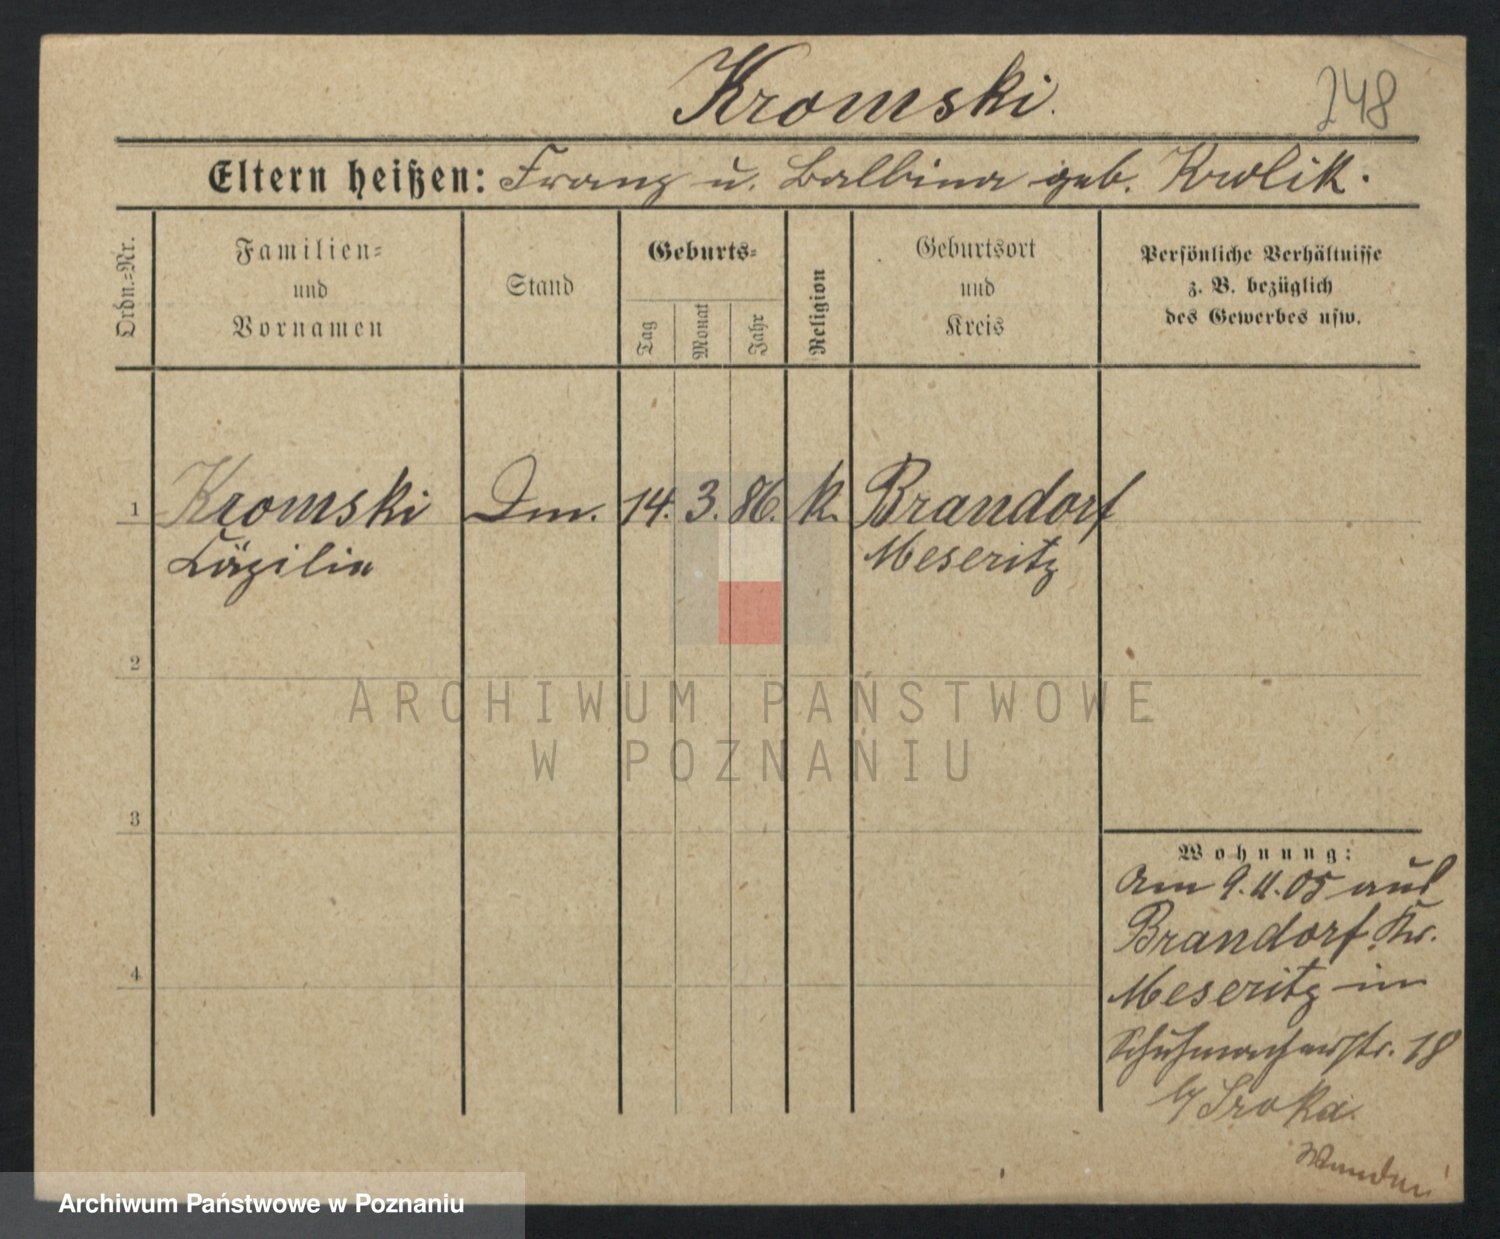 Kromski.
248
Eltern heißen: Franz u. Balbina geb. Krolik.
Ordn.-Nr.
Familien-
und
Vornamen
Stand
Geburts-
Tag
Monat
Jahr
Religion
Geburtsort
und
Kreis
Persönliche Verhältnisse
z. B. bezüglich
des Gewerbes usw.
1 Kromski 14. 3. 86. k. Brandorf
Cäzilia Meseritz
2
3
4
Wohnung:
Am 9.11.05 aus
Brandorf Kr.
Meseritz in
Schuhmacherstr. 18
b/ Sroka.
ARCHIWUM PAŃSTWOWE
W POZNANIU
Archiwum Państwowe w Poznaniu